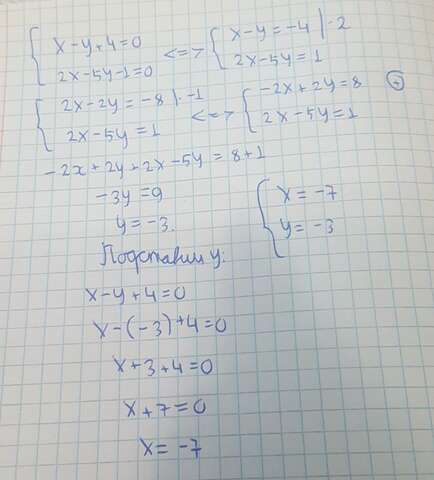 { x-y+4=0 <=> { x-y=-4 |·2
{ 2x-5y-1=0 { 2x-5y=1
{ 2x-2y=-8 |·-1 <=> { -2x+2y=8 (+)
{ 2x-5y=1 { 2x-5y=1
-2x+2y+2x-5y=8+1
-3y=9
y=-3.
{ x=-7
{ y=-3
Подставим y:
x-y+4=0
x-(-3)+4=0
x+3+4=0
x+7=0
x=-7